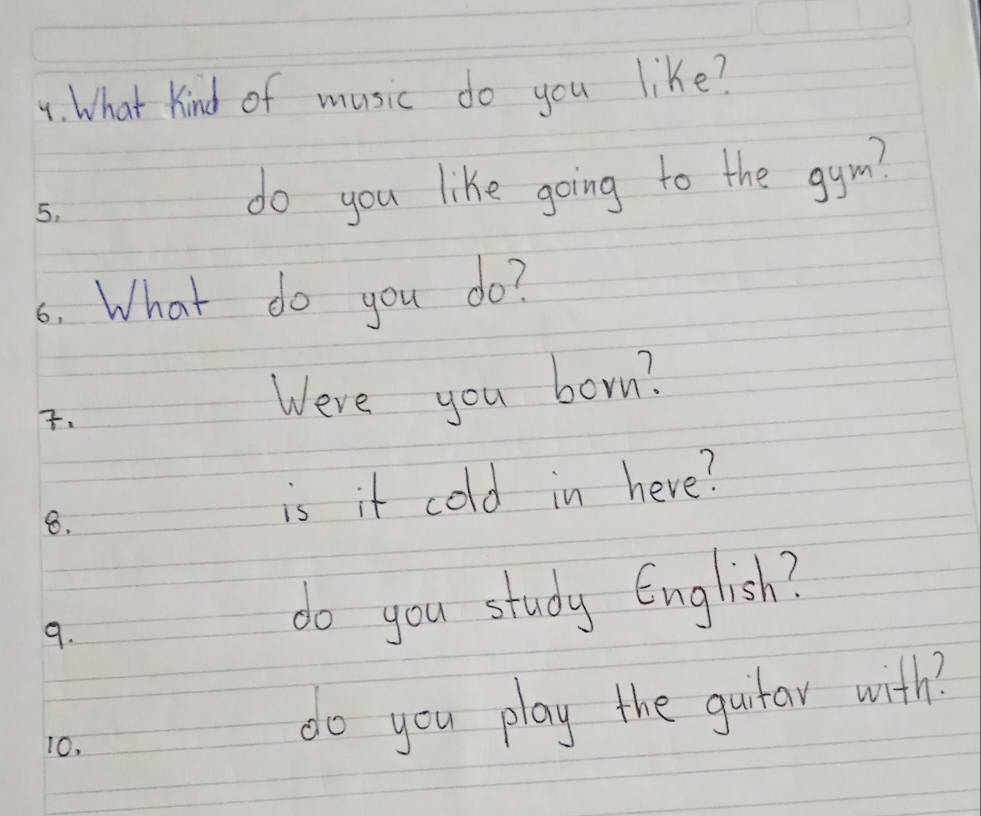 4. What Kind of music do you like?
5. do you like going to the gym?
6. What do you do?
7. Were you born?
8. is it cold in here?
9. do you study English?
10. do you play the guitar with?